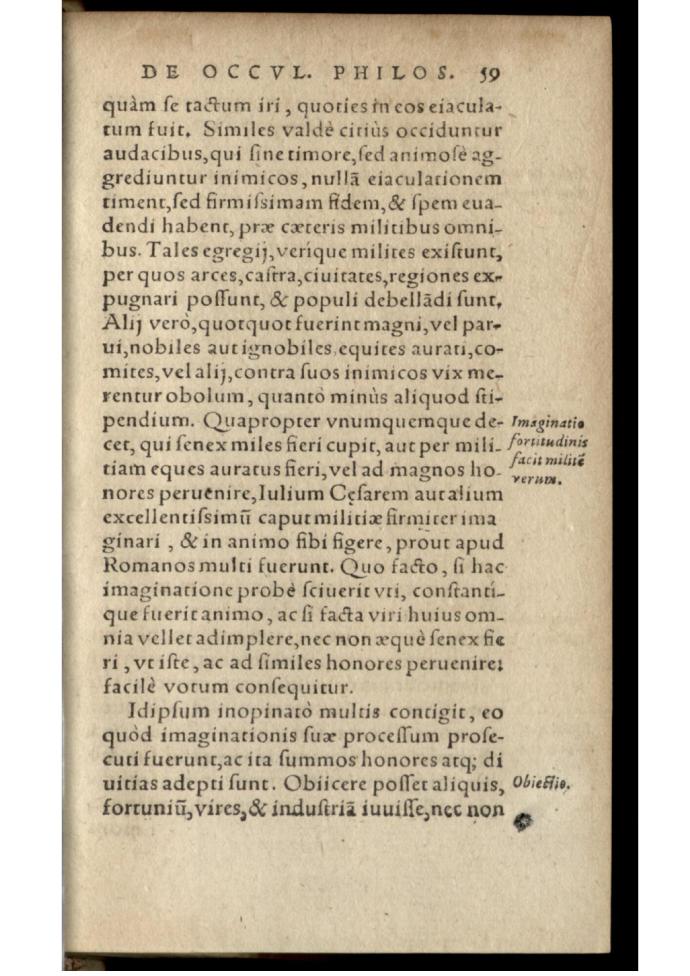 DE OCCVL. PHILOS. 59
quàm ſe tactum iri, quoties in eos eiacula-
tum fuit. Similes valdè citiùs occiduntur
audacibus, qui ſine timore, ſed animoſè ag-
grediuntur inimicos, nullā eiaculationem
timent, ſed firmiſsimam fidem, & ſpem eua-
dendi habent, præ cæteris militibus omni-
bus. Tales egregij, verique milites exiſtunt,
per quos arces, caſtra, ciuitates, regiones ex-
pugnari poſſunt, & populi debellādi ſunt.
Alij verò, quotquot fuerint magni, vel par-
ui, nobiles aut ignobiles, equites aurati, co-
mites, vel alij, contra ſuos inimicos vix me-
rentur obolum, quantò minùs aliquod ſti-
pendium. Quapropter vnumquemque de-
cet, qui ſenex miles fieri cupit, aut per mili-
tiam eques auratus fieri, vel ad magnos ho-
nores peruenire, Iulium Cęſarem aut alium
excellentiſsimū caput militiæ firmiter ima
ginari, & in animo ſibi figere, prout apud
Romanos multi fuerunt. Quo facto, ſi hac
imaginatione probè ſciuerit vti, conſtanti-
que fuerit animo, ac ſi facta viri huius om-
nia vellet adimplere, nec non æquè ſenex fie
ri, vt iſte, ac ad ſimiles honores peruenire:
facilè votum conſequitur.
Idipſum inopinatò multis contigit, eo
quòd imaginationis ſuæ proceſſum proſe-
cuti fuerunt, ac ita ſummos honores atq; di
uitias adepti ſunt. Obiicere poſſet aliquis,
fortuniū, vires, & induſtriā iuuiſſe, nec non
Imaginatio
fortitudinis
facit militē
verum.
Obiectio.